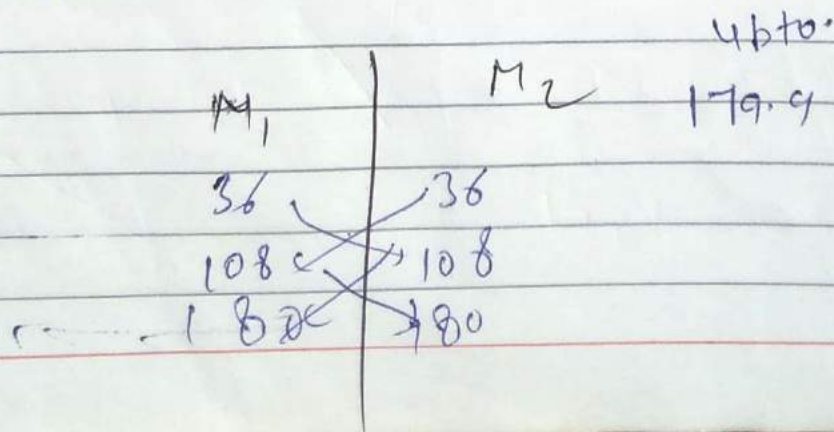 upto.
M1 M2 179.9
36 36
108 108
180 180